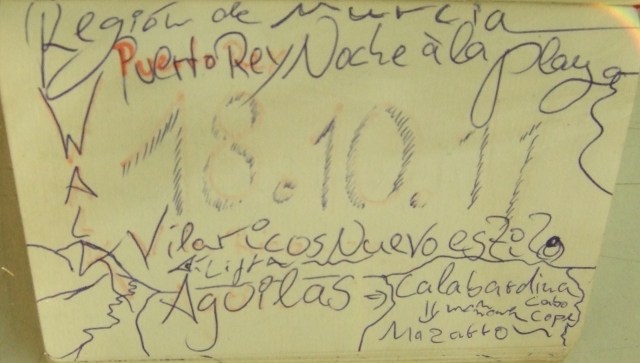 Región de Murcia
Puerto Rey Noche à la playa
WALD
18.10.11
Vilaricos Nuevo estilo
Aguilas → Calabardina
Cabo
Cope